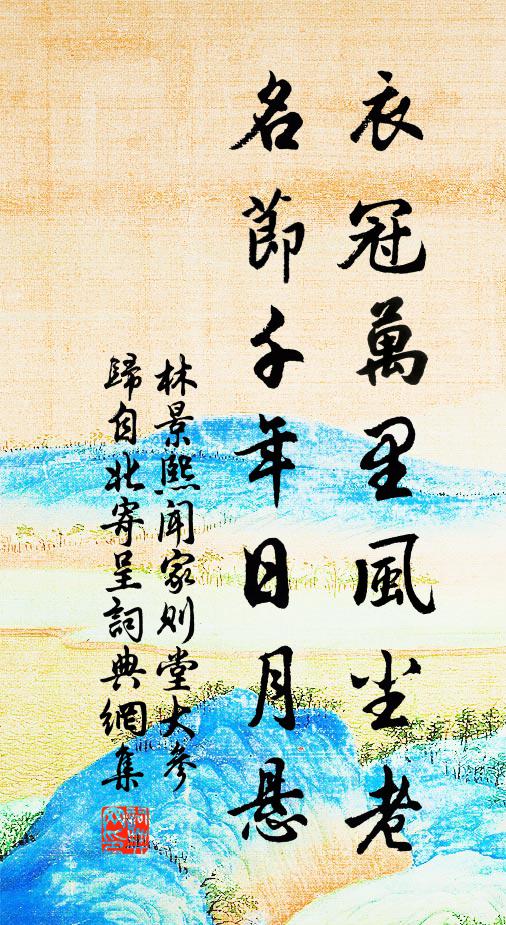 衣冠萬里風尘老
名節千年日月悬
林景熙聞家则堂大参
歸自北寄呈詞典網集